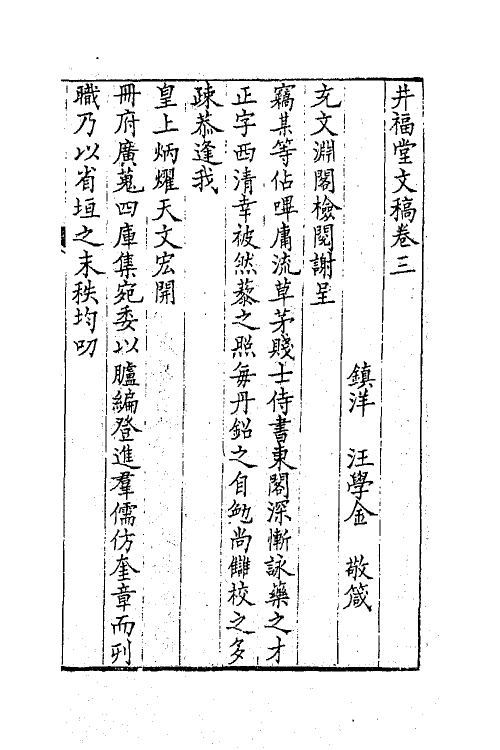 井福堂文稿卷三
鎮洋 汪學金 敬箴
充文淵閣檢閱謝呈
竊某等佔嗶庸流草茅賤士侍書東閣深慚詠藥之才
正字西清幸被然藜之照每丹鉛之自勉尚讎校之多
疎恭逢我
皇上炳燿天文宏開
冊府廣蒐四庫集宛委以臚編登進羣儒仿奎章而列
職乃以省垣之末秩均叨